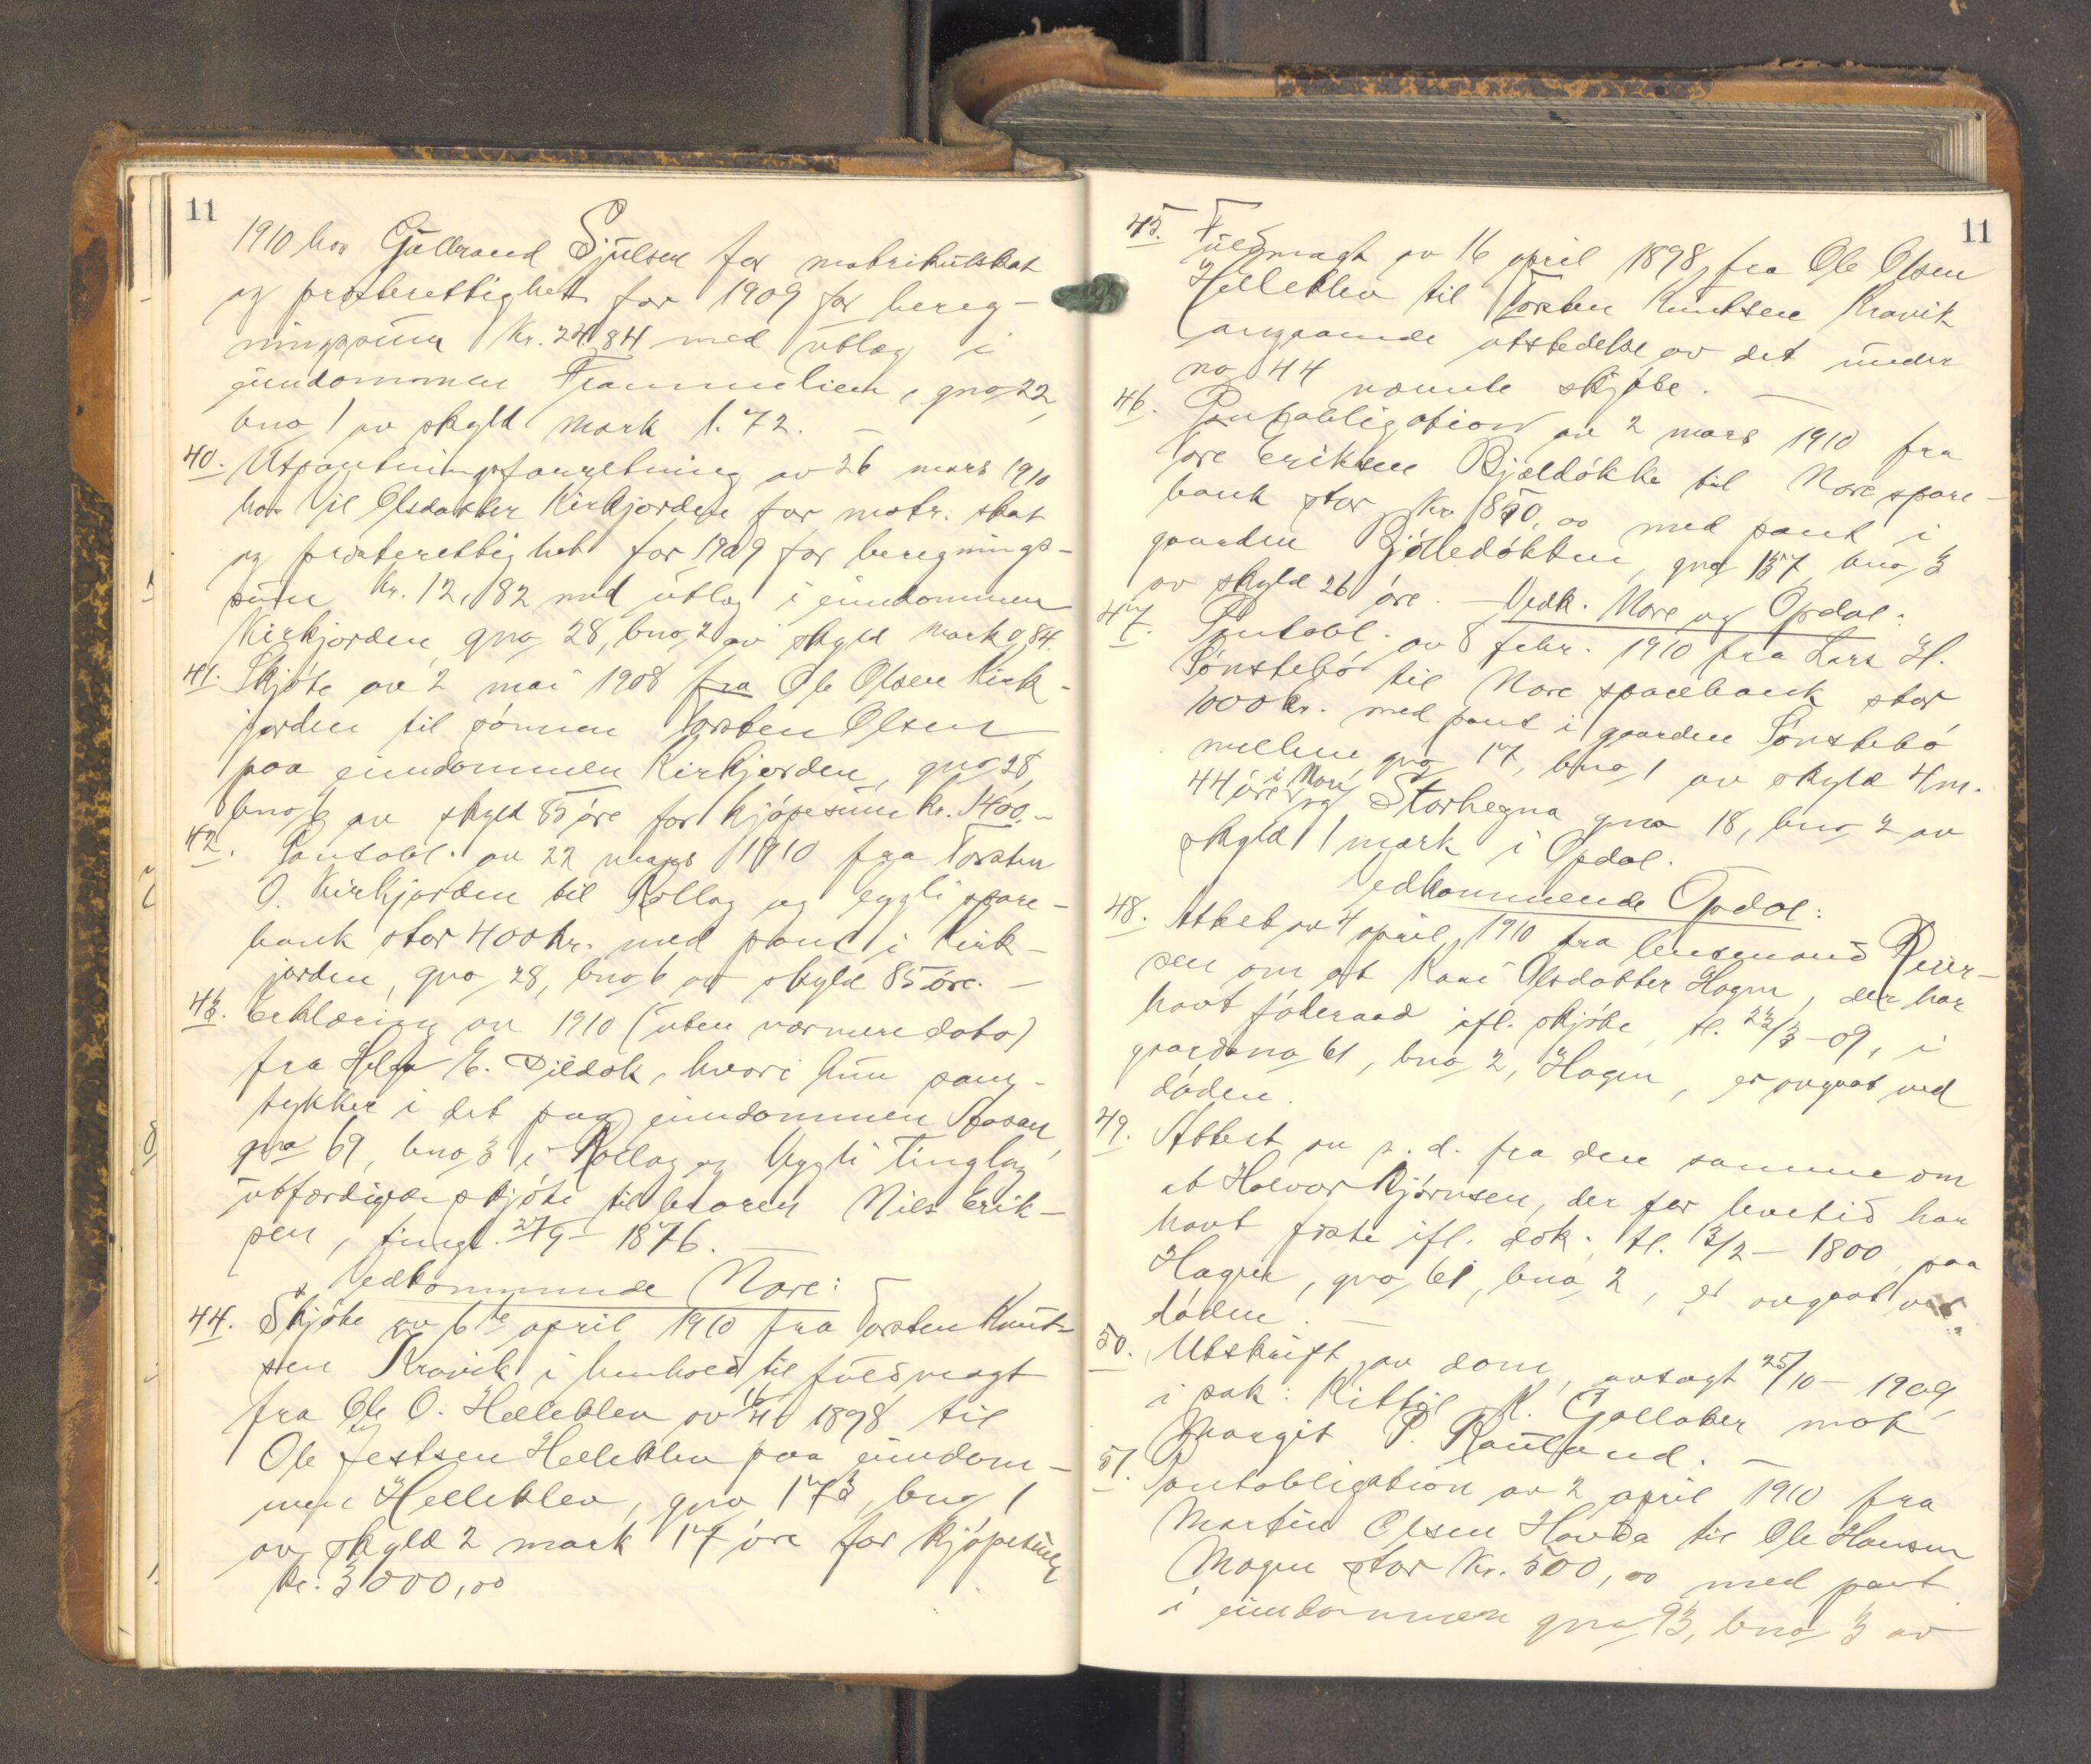 11
1910 hos Gulbrand Sjulsen for matrikulskat
og præsterettighet for 1909 for bereg-
ningssum kr. 24,84 med utlæg i
eiendommen Trommelien, gno 22,
bno 1 av skyld mark 1.72. —
40. Utpantningsforretning av 26 mars 1910
hos Olsdatter Kirkjorden for matr. skat
og presterettighet for 1909 for beregnings-
sum kr. 12,82 med utlæg i eiendommen
Kirkjorden, gno 28, bno 2 av skyld mark 0,84.
41. Skjøte av 2 mai 1908 fra Ole Olsen Kirk-
jorden til sønnen Torsten Olsen
paa eiendommen Kirkjorden, gno 28,
bno 6 av skyld 85 øre for kjøpesum kr. 1400.-
42. Pantobl. av 22 mars 1910 fra Torsten
O. Kirkjorden til Rollag og eggli spare-
bank stor 400 kr. med pant i Kirk-
jorden, gno 28, bno 6 av skyld 85 øre. —
43. Erklæring av 1910 (uten nærmere dato)
fra Helge E. Dildok, hvori hun sam-
tykker i det paa eiendommen Aasan,
gno 69, bno 3 i Rollag og Veggli Tinglag
utfærdigede skjøte til broren Nils Erik-
sen, tingl. 27/9 - 1876. —
Vedkommende Nore:
44. Skjøte av 6te april 1910 fra Torsten Knut-
sen Kravik i henhold til fuldmagt
fra Ole O. Helleklev av 16/4 1898 til
Ole Jestsen Helleklev paa eiendom-
men Helleklev, gno 173, bno 1
av skyld 2 mark 17 øre for kjøpesum
kr. 3000,00
11
45. Fuldmagt av 16 april 1898 fra Ole Olsen
Helleklev til Torsten Knutsen Kravik
angaaende utstedelse av det under
no 44 nævnte skjøte. —
46. Pantobligation av 2 mars 1910 fra
Tore Eriksen Bjældokke til Nore spare-
bank stor kr. 850,00 med pant i
gaarden Bjølledokken, gno 157, bno 3
av skyld 26 øre. — Vedk. Nore og Opdal:
47. Pantobl. av 8 febr. 1910 fra Lars H.
Sønstebø til Nore sparebank stor
1000 kr. med pant i gaarden Sønstebø
mellem, gno 17, bno 1 av skyld 4 m.
44 øre i Nore og Storhegna gno 18, bno 2 av
skyld 1 mark i Opdal.
Vedkommende Opdal:
48. Attest av 4 april 1910 fra lensmand
sen om at Kari Olsdatter Hagen, der har
havt føderaad ifl. skjøte, tl. 22/3 - 09, i
gaardsno 61, bno 2, Hagen, er avgaat ved
døden.
49. Attest av s. d. fra den samme om
at Halvor Bjørnsen, der for levetid har
havt fæste ifl. dok. tl. 13/2 - 1800, paa
Hagen, gno 61, bno 2, er avgaat ved
døden. —
50. Utskrift av dom, avsagt 25/10 - 1909,
i sak: Kittil K. Gallaker mot
Margit P. Rauland. —
51. Pantobligation av 2 april 1910 fra
Martin Olsen Hovda til Ole Hansen
Mogen stor kr. 500,00 med pant
i eiendommen gno 93, bno 3 av